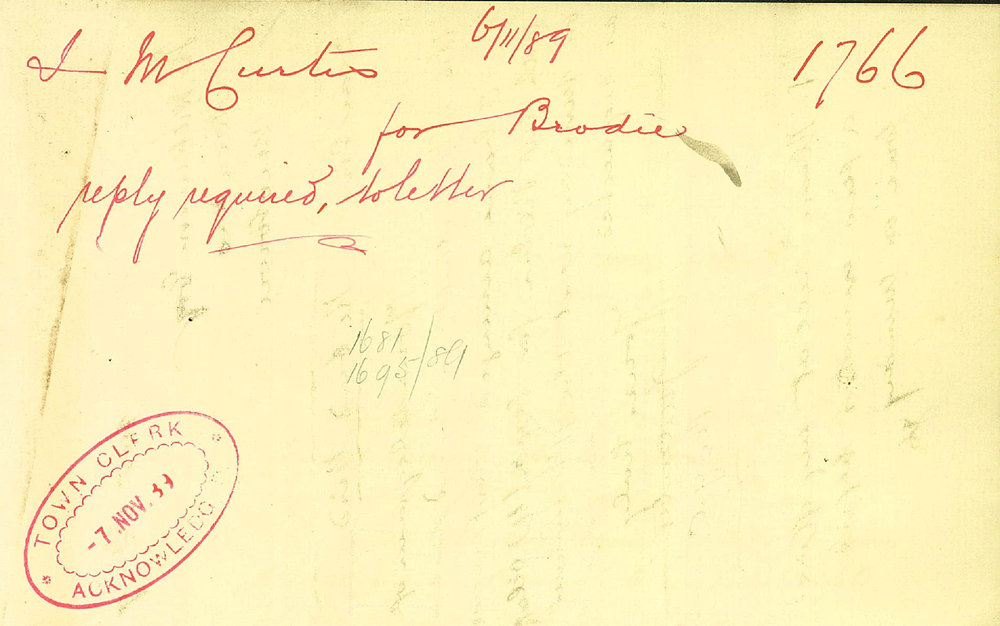 6/11/89
1766
I M Curtis
for Brodie
reply required, to letter
1681
1695/89
TOWN CLERK
-7.NOV.89
ACKNOWLEDG